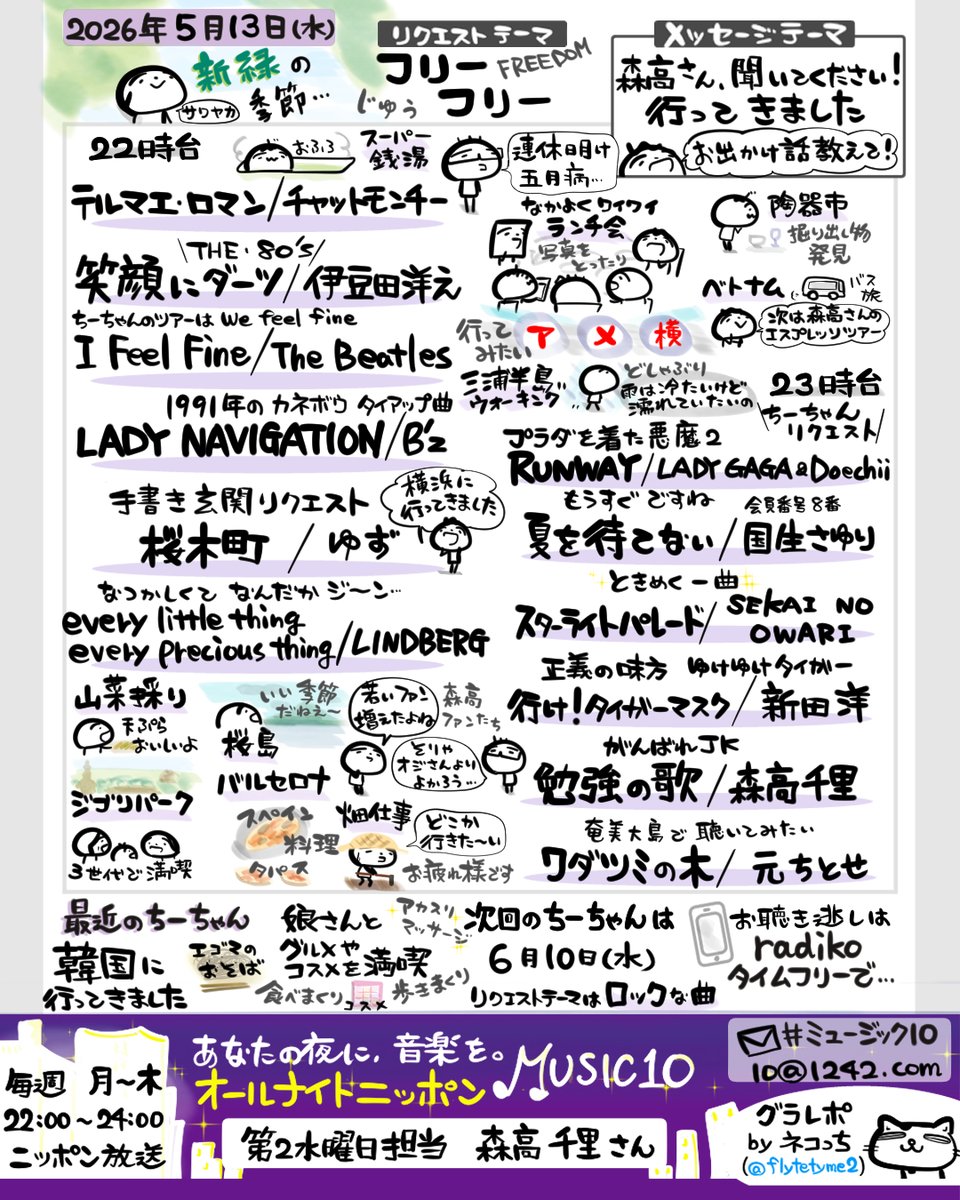 2026年5月13日(水)
新緑の
季節…
サワヤカ
リクエストテーマ
フリー FREEDOM
じゆう フリー
メッセージテーマ
森高さん、聞いてください!
行ってきました
お出かけ話教えて!
22時台
おふろ
スーパー
銭湯
テルマエ・ロマン/チャットモンチー
THE・80's
笑顔にダーツ/伊豆田洋之
ちーちゃんのツアーは we feel fine
I Feel Fine/The Beatles
1991年のカネボウ タイアップ曲
LADY NAVIGATION/B'z
手書き玄関リクエスト
桜木町/ゆず
横浜に
行ってきました
なつかしくて なんだか ジ〜ン…
every little thing
every precious thing/LINDBERG
山菜採り
天ぷら
おいしいよ
いい季節
だねぇ〜
桜島
若いファン
増えたよね
森高
ファンたち
そりゃ
オジさんより
よかろう…
ジブリパーク
3世代で満喫
バルセロナ
スペイン
料理
タパス
畑仕事
どこか
行きた〜い
お疲れ様です
連休明け
五月病…
なかよくワイワイ
ランチ会
写真を
とったり
陶器市
掘り出し物
発見
ベトナム
バス
旅
次は森高さんの
エスプレッソツアー
行って
みたい
アメ横
三浦半島
ウォーキング
どしゃぶり
雨は冷たいけど
濡れていたいの
23時台
ちーちゃん
リクエスト
プラダを着た悪魔2
RUNWAY/LADY GAGA & Doechii
もうすぐですね
会員番号8番
夏を待てない/国生さゆり
ときめく一曲
スターライトパレード/SEKAI NO OWARI
正義の味方 ゆけゆけタイガー
行け!タイガーマスク/新田洋
がんばれJK
勉強の歌/森高千里
奄美大島で聴いてみたい
ワダツミの木/元ちとせ
最近のちーちゃん
韓国に
行ってきました
エゴマの
おそば
娘さんと
グルメや
コスメを満喫
アカスリ
マッサージ
食べまくり
コスメ
歩きまくり
次回のちーちゃんは
6月10日(水)
リクエストテーマはロックな曲
お聴き逃しは
radiko
タイムフリーで…
毎週 月〜木
22:00〜24:00
ニッポン放送
あなたの夜に、音楽を。
オールナイトニッポン MUSIC10
第2水曜日担当 森高千里さん
#ミュージック10
10@1242.com
グラレポ
by ネコっち
(@flytetyme2)